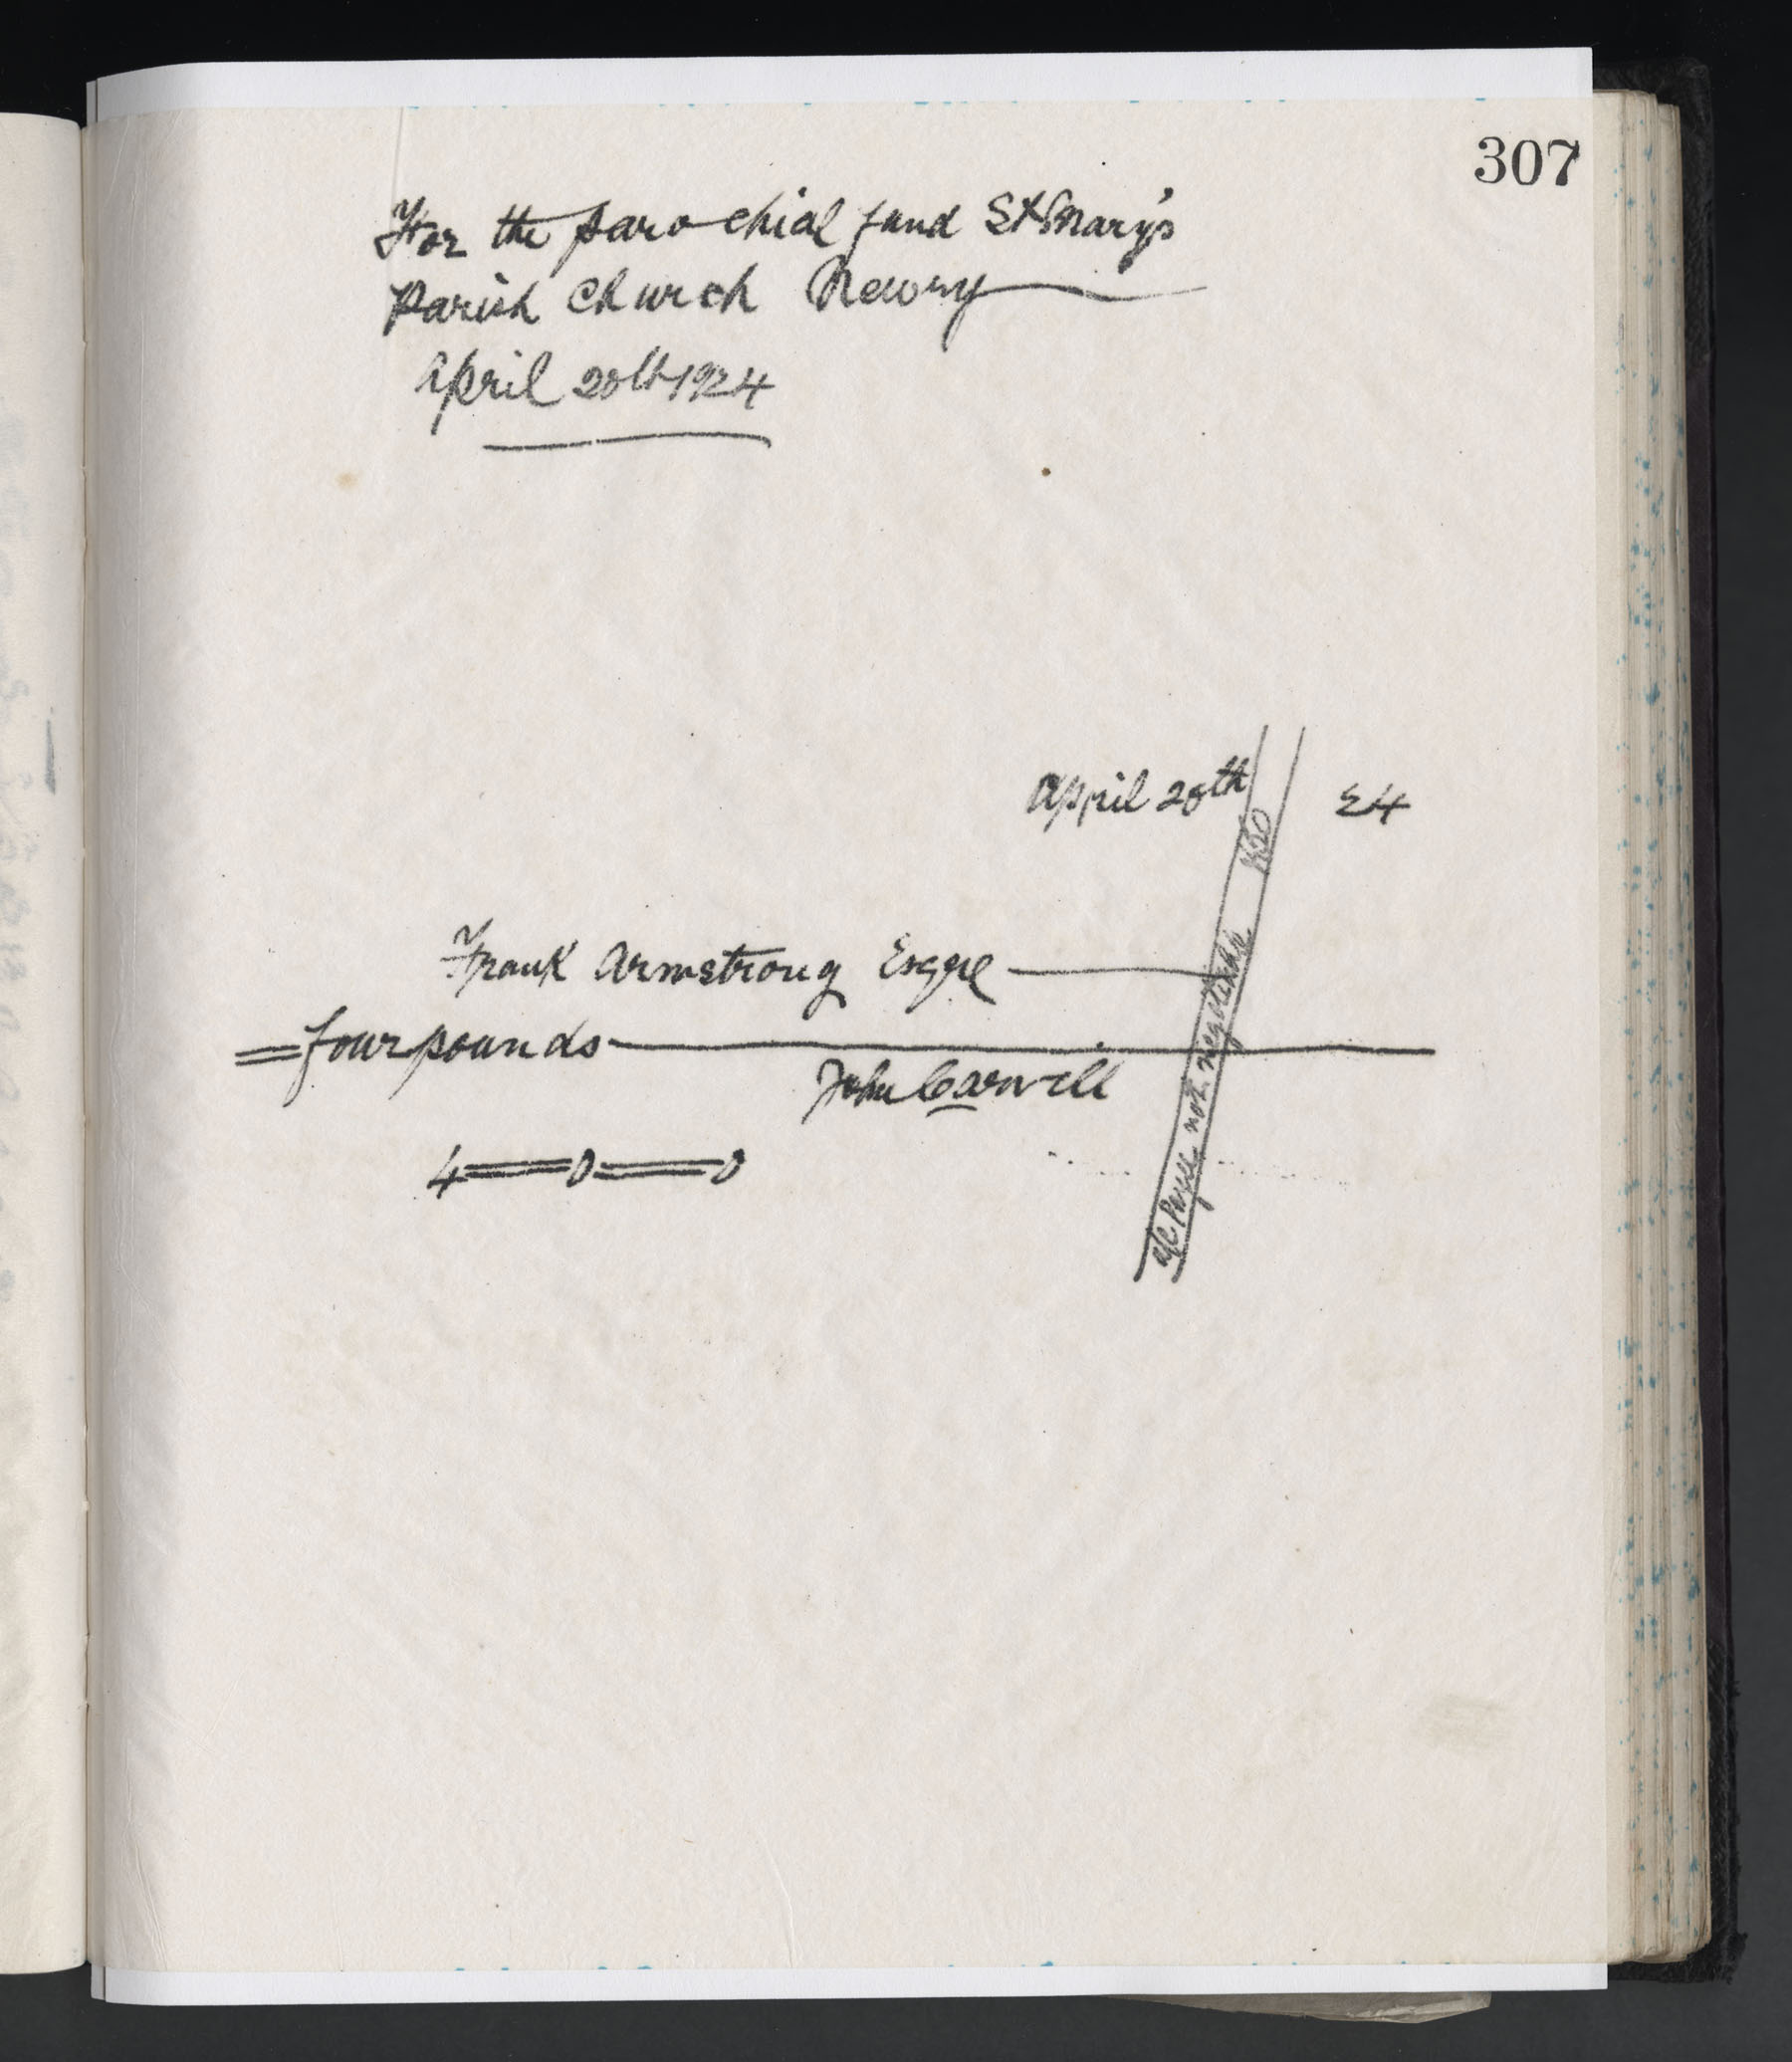 307
For the parochial fund St Mary's
Parish Church Newry
April 20th 1924
April 20th 24
Frank Armstrong Esqre
= four pounds
John Carvill
4 = 0 = 0
a/c Payee not negotiable &Co